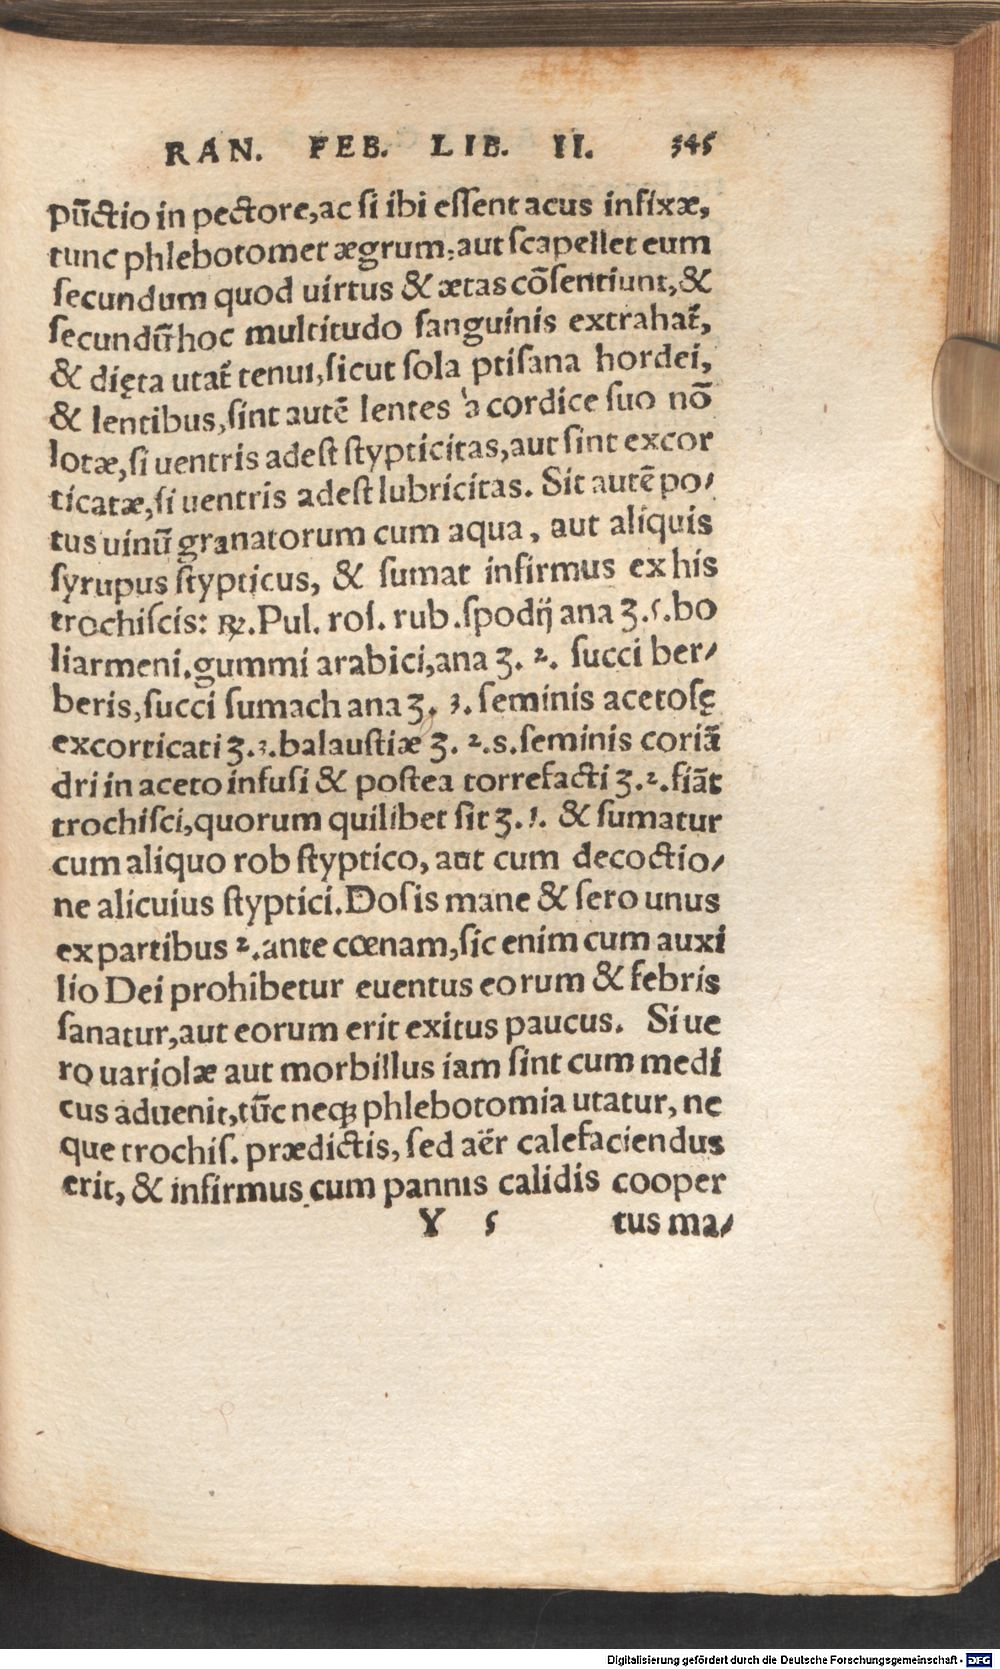 RAN. FEB. LIB. II. 345
pūctio in pectore, ac ſi ibi eſſent acus infixæ,
tunc phlebotomet ægrum, aut ſcapellet eum
ſecundum quod uirtus & ætas cōſentiunt, &
ſecundū hoc multitudo ſanguinis extrahat᷑,
& dięta utat᷑ tenui, ſicut ſola ptiſana hordei,
& lentibus, ſint autē lentes cordice ſuo nō
lotæ, ſi uentris adeſt ſtypticitas, aut ſint excor
ticatæ, ſi uentris adeſt lubricitas. Sit autē po⸗
tus uinū granatorum cum aqua, aut aliquis
ſyrupus ſtypticus, & ſumat infirmus ex his
trochiſcis: ℞. Pul. roſ. rub. ſpodij ana ʒ. 5. bo
liarmeni. gummi arabici, ana ʒ. 2. ſucci ber⸗
beris, ſucci ſumach ana ʒ. 3. ſeminis acetoſę
excorticati ʒ. 3. balauſtiæ ʒ. 2. s. ſeminis coriā
dri in aceto infuſi & poſtea torrefacti ʒ. 2. fiāt
trochiſci, quorum quilibet ſit ʒ. 1. & ſumatur
cum aliquo rob ſtyptico, aut cum decoctio⸗
ne alicuius ſtyptici. Doſis mane & ſero unus
ex partibus 2. ante cœnam, ſic enim cum auxi
lio Dei prohibetur euentus eorum & febris
ſanatur, aut eorum erit exitus paucus. Si ue
ro uariolæ aut morbillus iam ſint cum medi
cus aduenit, tūc neqꝫ phlebotomia utatur, ne
que trochiſ. prædictis, ſed aër calefaciendus
erit, & infirmus cum pannis calidis cooper
Y 5 tus ma⸗
Digitalisierung gefördert durch die Deutsche Forschungsgemeinschaft - DFG